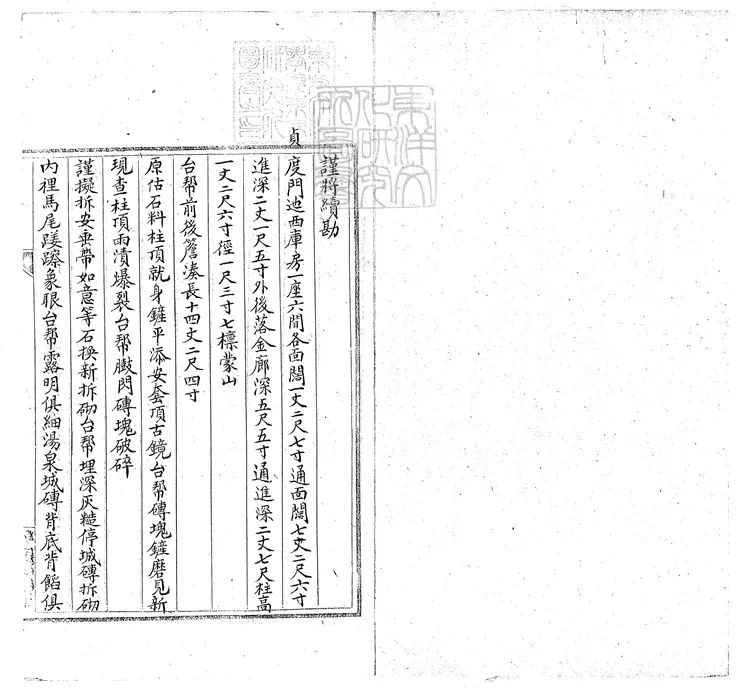 謹將續勘
貞
度門迆西庫房一座六間各面闊一丈二尺七寸通面闊七丈二尺六寸
進深二丈一尺五寸外後落金廊深五尺五寸通進深二丈七尺柱高
一丈二尺六寸徑一尺三寸七檁蒙山
台幫前後簷湊長十四丈二尺四寸
原估石料柱頂就身鏟平添安套頂古鏡台幫磚塊鏟磨見新
現查柱頂雨漬爆裂台幫臌閃磚塊破碎
謹擬拆安垂帶如意等石換新拆砌台幫埋深灰糙停城磚拆砌
內裡馬尾蹉蹀象眼台幫露明俱細湯泉城磚背底背餡俱
東洋文化研究所